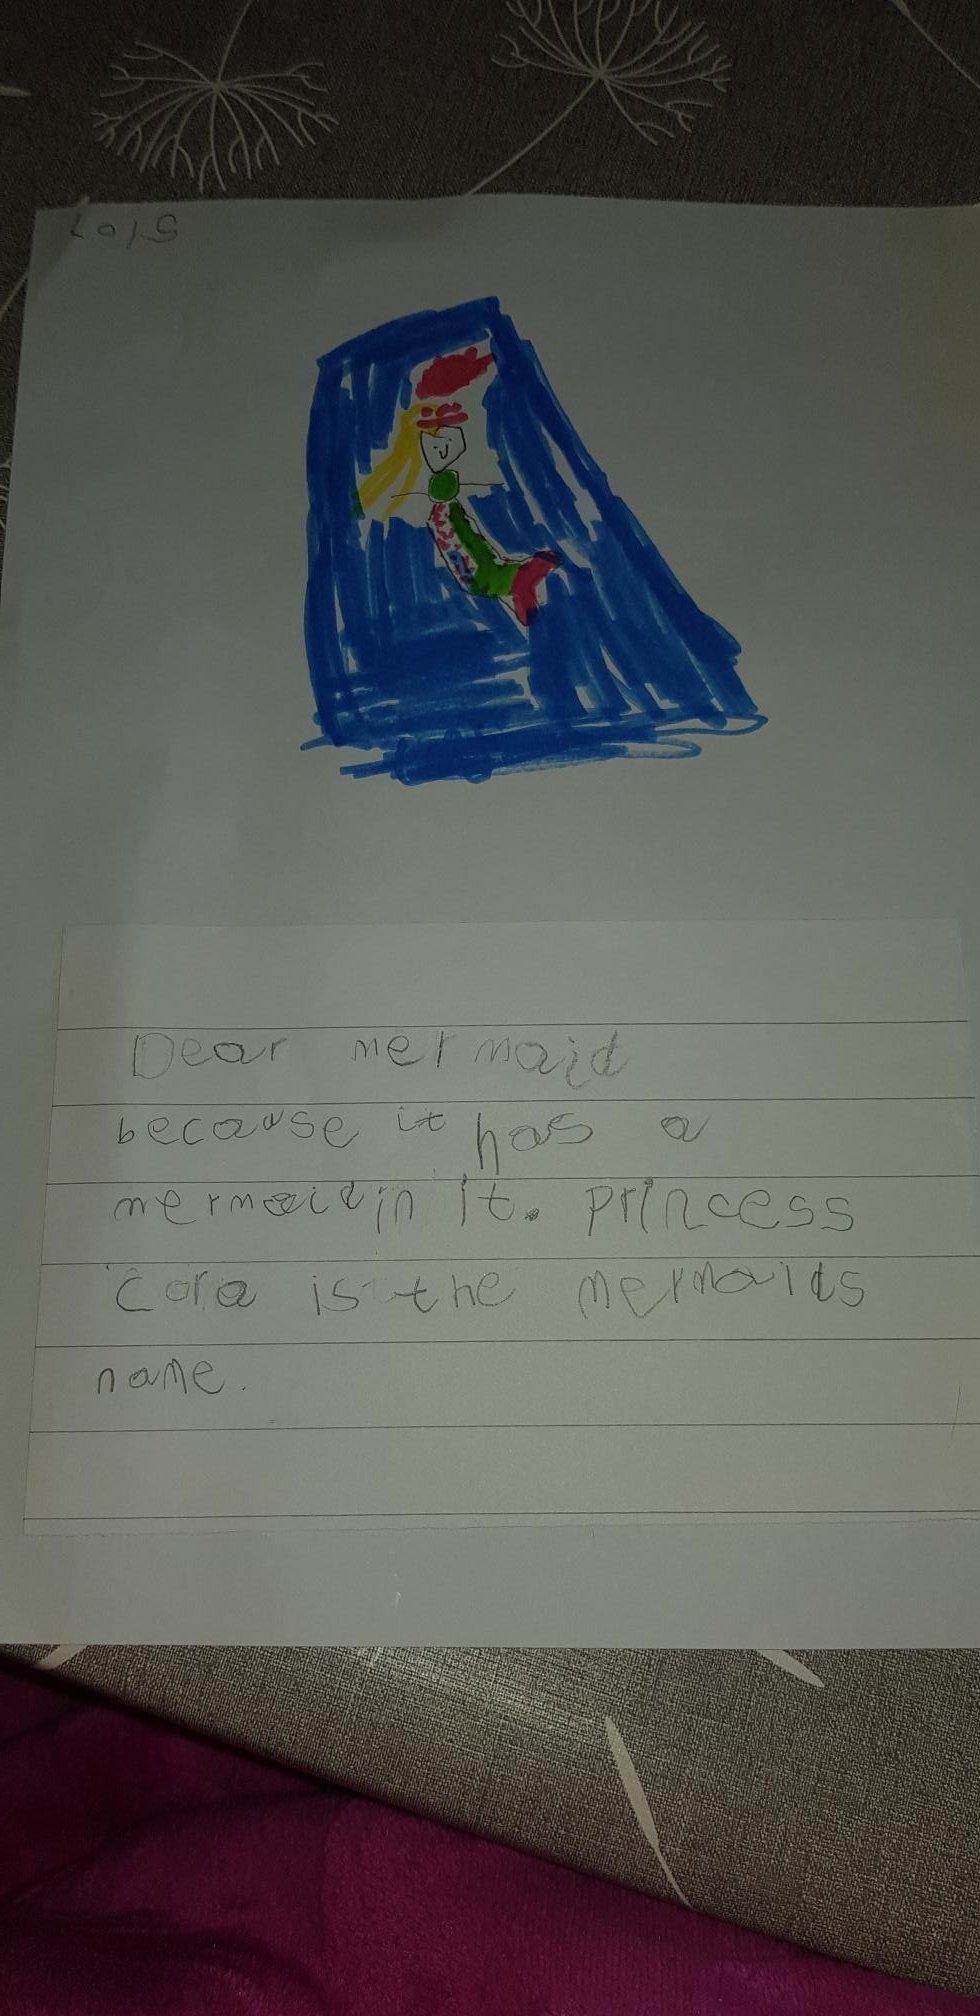 Dear mermaid
because it has a
mermaid in it. princess
Cora is the mermaids
name.